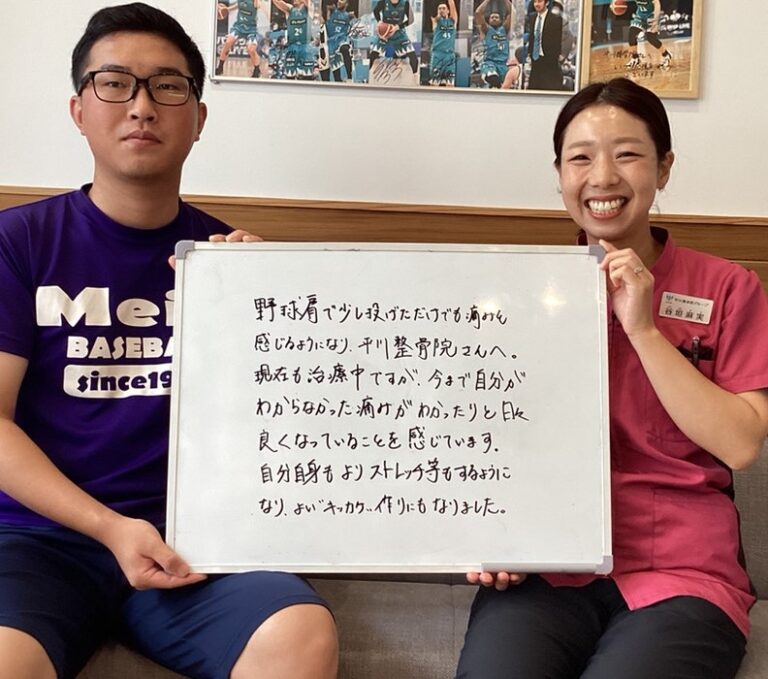 野球肩で少し投げただけでも痛みを
感じるようになり、平川整骨院さんへ。
現在も治療中ですが、今まで自分が
わからなかった痛みがわかったりと日々
良くなっていることを感じています。
自分自身もよりストレッチ等もするように
なり、よい"キッカケ"作りにもなりました。
Mei
BASEBA
since19